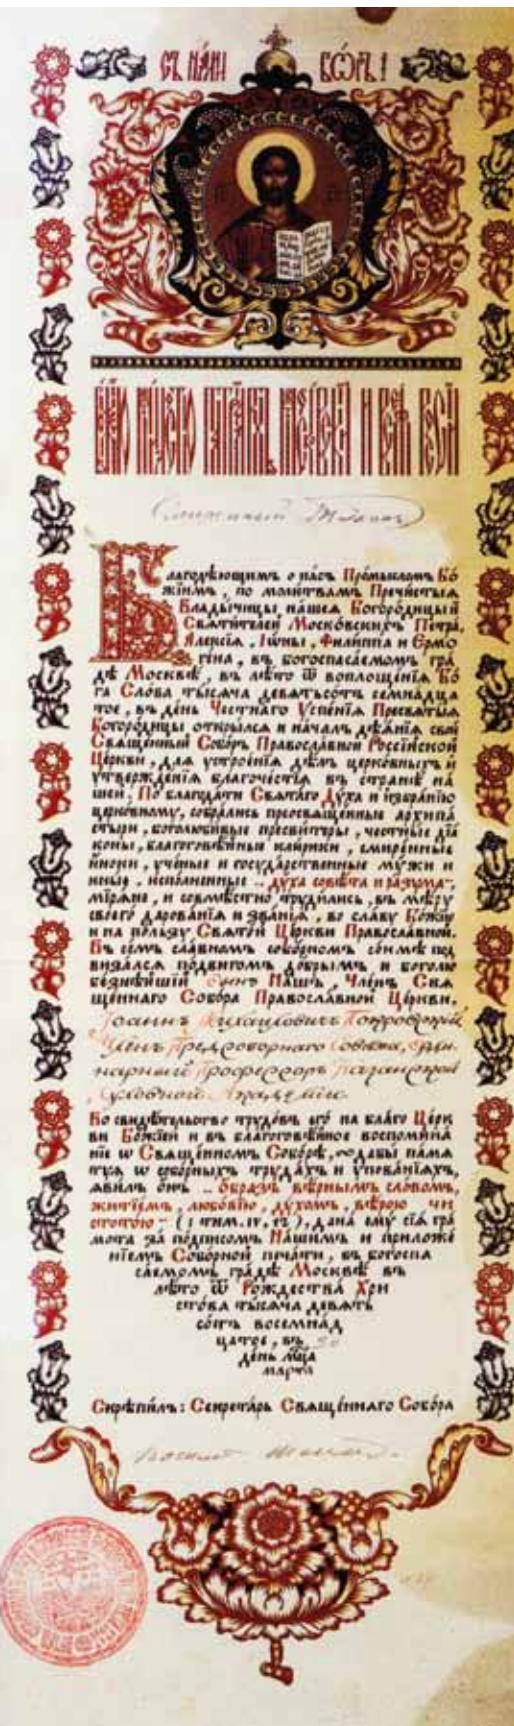 Съ нами Бг҃ъ!
Бж҃їею млⷭ҇тїю патрїархъ московскїй и всеѧ Россїи
Смиренный Тихонъ
Благодѣющимъ о насъ Про́мысломъ Бо́
жїимъ, по молитвамъ Пречи́стыя
Влады́чицы нашея Богоро́дицы и
Святи́телей Моско́вскихъ Петра̀,
Алексія, Іѡ́ны, Фили́ппа и Ермо
гена, въ богоспаса́емомъ гра́
дѣ Москвѣ, въ лѣто ѿ воплощенія Бо́
га Сло́ва ты́сяча девятьсо́тъ семнадца
тое, въ день Честна́го Успе́нія Пресвяты́я
Богоро́дицы откры́лся и нача́лъ дѣя́нія своя̀
Свяще́нный Собо́ръ Правосла́вной Россі́йской
Це́ркви, для устрое́нія дѣлъ церко́вныхъ и
утвержде́нія благоче́стія въ странѣ на́
шей. По благода́ти Свята́го Ду́ха и избра́нію
церко́вному, собра́лись преосвяще́нные архипа́
стыри, боголюби́вые пресви́теры, честны́е діа́
коны, благоговѣ́йные кли́рики, смире́нные
и́ноки, уче́ные и госуда́рственные мужи и
ины́е, испо́лненные „ду́ха совѣ́та и ра́зума“,
міря́не, и совмѣ́стно труди́лись, въ мѣ́ру
своего̀ дарова́нія и зва́нія, во сла́ву Бо́жію
и на по́льзу Святой Це́ркви Правосла́вной.
Въ семъ сла́вномъ собо́рномъ со́нмѣ под
виза́лся по́двигомъ до́брымъ и боголю
бе́знѣйшій сынъ Нашъ, Членъ Свя
ще́ннаго Собо́ра Правосла́вной Це́ркви,
Іоаннъ Михаиловичъ Покровскій
Членъ Предсоборнаго Совѣта, Орди
нарный Профессоръ Казанской
Духовной Академіи.
Во свидѣ́тельство трудо́въ его̀ на бла́го Це́рк
ви Бо́жіей и въ благоговѣ́йное воспомина́
ніе ѡ Свяще́нномъ Собо́рѣ, дабы̀ па́мя
туя ѡ собо́рныхъ труда́хъ и упова́ніяхъ,
яви́лъ онъ „о́бразъ вѣ́рнымъ сло́вомъ,
житіе́мъ, любо́вію, ду́хомъ, вѣ́рою чи
стото́ю“ (1 тим. іѵ, в҃і), дана̀ ему̀ сія̀ гра́
мота за по́дписомъ На́шимъ и приложе́
ніемъ Собо́рной печа́ти, въ богоспа
са́емомъ гра́дѣ Москвѣ̀ въ
лѣ́то ѿ Рождества̀ Хри
сто́ва ты́сяча девять
со́тъ восемна́д
цатое, въ
день мц҃а
марта
Скрѣпи́лъ: Секрета́рь Свяще́ннаго Собо́ра